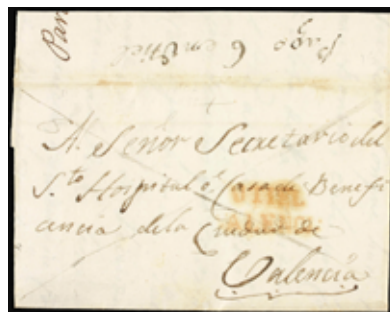 Pago 6 en Utiel
Al Señor Secretario del
S.to Hospital o Casa de Benefi
cencia de la Ciudad de
Valencia
UTIEL